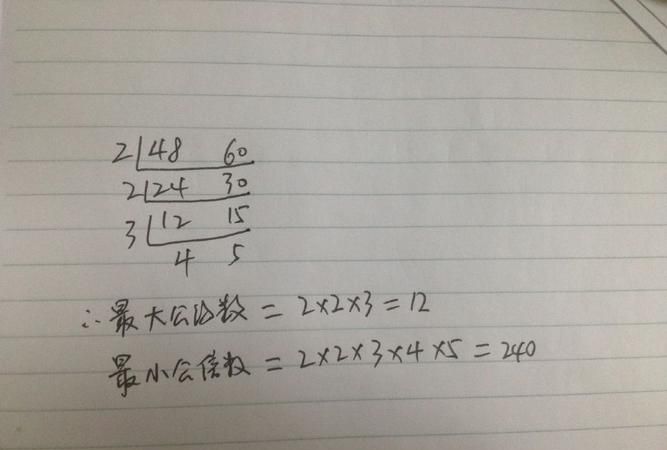 2 48 60
2 24 30
3 12 15
4 5
∴最大公约数 = 2×2×3 = 12
最小公倍数 = 2×2×3×4×5 = 240